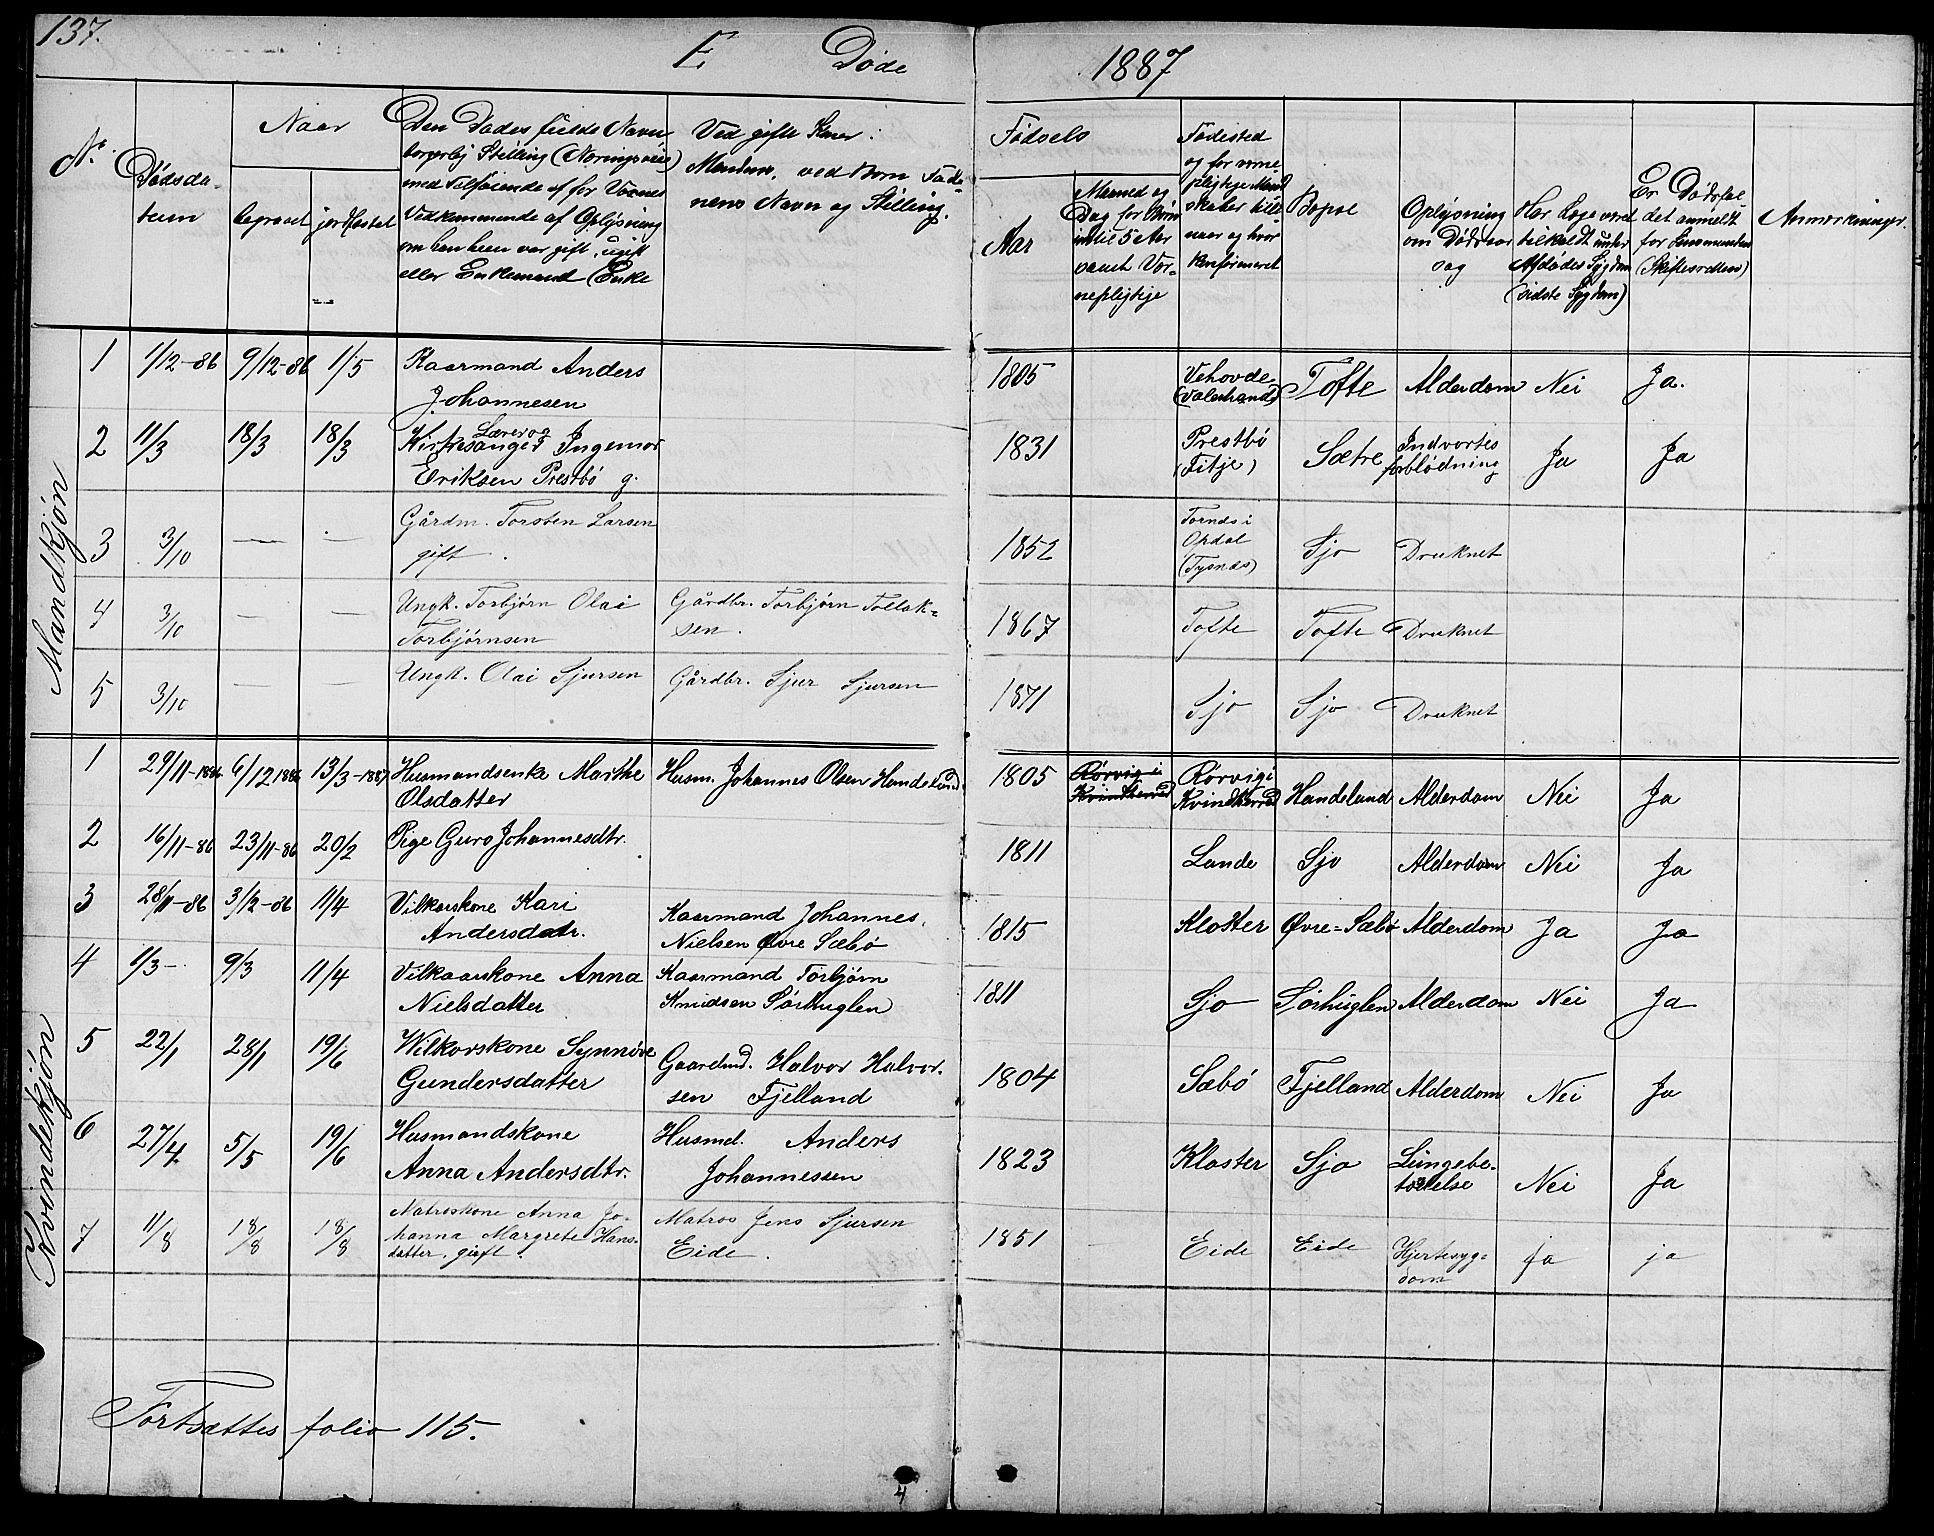 137.
E. Døde 1887
No.
Dødsda-
tum
Naar
begravet
jordfæstet
Den Dødes fulde Navn
borgerlig Stilling (Næringsvei)
med tilføiende af for Voxnes
Vedkommende af Oplysning
om han hun var gift, ugift
eller Enkemand (Enke
Ved gifte Koner:
Mandens, ved Børn Fade-
rens Navn og Stilling.
Fødsels
Aar
Maaned og
Dag for Børn
indtil 5 Aar
samt Vær-
nepligtige
Fødested
og for værne-
pligtige Mand-
skaber tillige
naar og hvor
konfirmeret
Bopæl
Oplysning
om Dødsaar-
sag
Har Læge været
tilkaldt under
Afdødes Sygdom
(sidste Sygdom)
Er Dødsfal-
det anmeldt
for Lensmanden
(Skifteretten)
Anmærkninger.
Mandkjøn
1 1/12-86 9/12-86 1/5 Kaarmand Anders
Johannesen
1805 Vehovde (Valestrand) Tofte Alderdom Nei Ja.
2 11/3 18/3 18/3 Lærer og
Kirkesanger Ingemor
Eriksen Prestbø g.
1831 Prestbø (Fitje) Sætre Indvortes forblødning Ja Ja
3 3/10 — — Gårdm. Torsten Larsen
gift.
1852 Tornds i Opdal (Tysnæs) Sjo Druknet
4 3/10 — — Ungk. Torbjørn Olai
Torbjørnsen
Gårdbr. Torbjørn Tollak-
sen.
1867 Tofte Tofte Druknet
5 3/10 — — Ungk. Olai Sjursen Gårdbr. Sjur Sjursen
1871 Sjo Sjo Druknet
Kvindekjøn
1 29/11-1886 6/12 1886 13/3-1887 Husmandsenke Marthe
Olsdatter
Husm. Johannes Olsen Handeland
1805 Rørvig i Kvindherred Rørvig i Kvindherred Handeland Alderdom Nei Ja
2 16/11-86 23/11-86 20/2 Pige Guro Johannesdtr.
1811 Lande Sjo Alderdom Nei Ja
3 28/11-86 3/12-86 11/4 Vilkarskone Kari
Andersdatr.
Kaarmand Johannes
Nielsen Øvre Sæbø
1815 Kloster Øvre-Sæbø Alderdom Ja Ja
4 1/3- 9/3 11/4 Vilkaarskone Anna
Nielsdatter
Kaarmand Torbjørn
Knudsen Sørhuglen
1811 Sjo Sørhuglen Alderdom Nei Ja
5 22/1 28/1 19/6 Wilkorskone Synnøve
Gundersdatter
Gaardmd. Halvor Halvor-
sen Fjelland
1804 Sæbø Fjelland Alderdom Nei Ja
6 27/4 5/5 19/6 Husmandskone
Anna Andersdtr.
Husmd. Anders
Johannessen
1823 Kloster Sjo Lungebe-
tændelse Nei Ja
7 11/8 18/8 18/8 Matroskone Anna Jo-
hanna Margrete Hans-
datter, gift.
Matros Jens Sjursen
Eide.
1851 Eide Eide Hjertesyg-
dom Ja ja
Fortsættes folio 115.
4